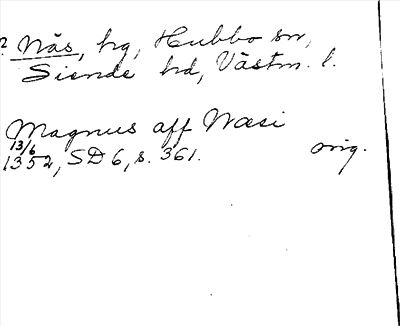 ? Näs, hg, Hubbo sn,
Siende hd, Västm. l.
Magnus aff Næsi
13/6
1352, SD 6, s. 361. orig.